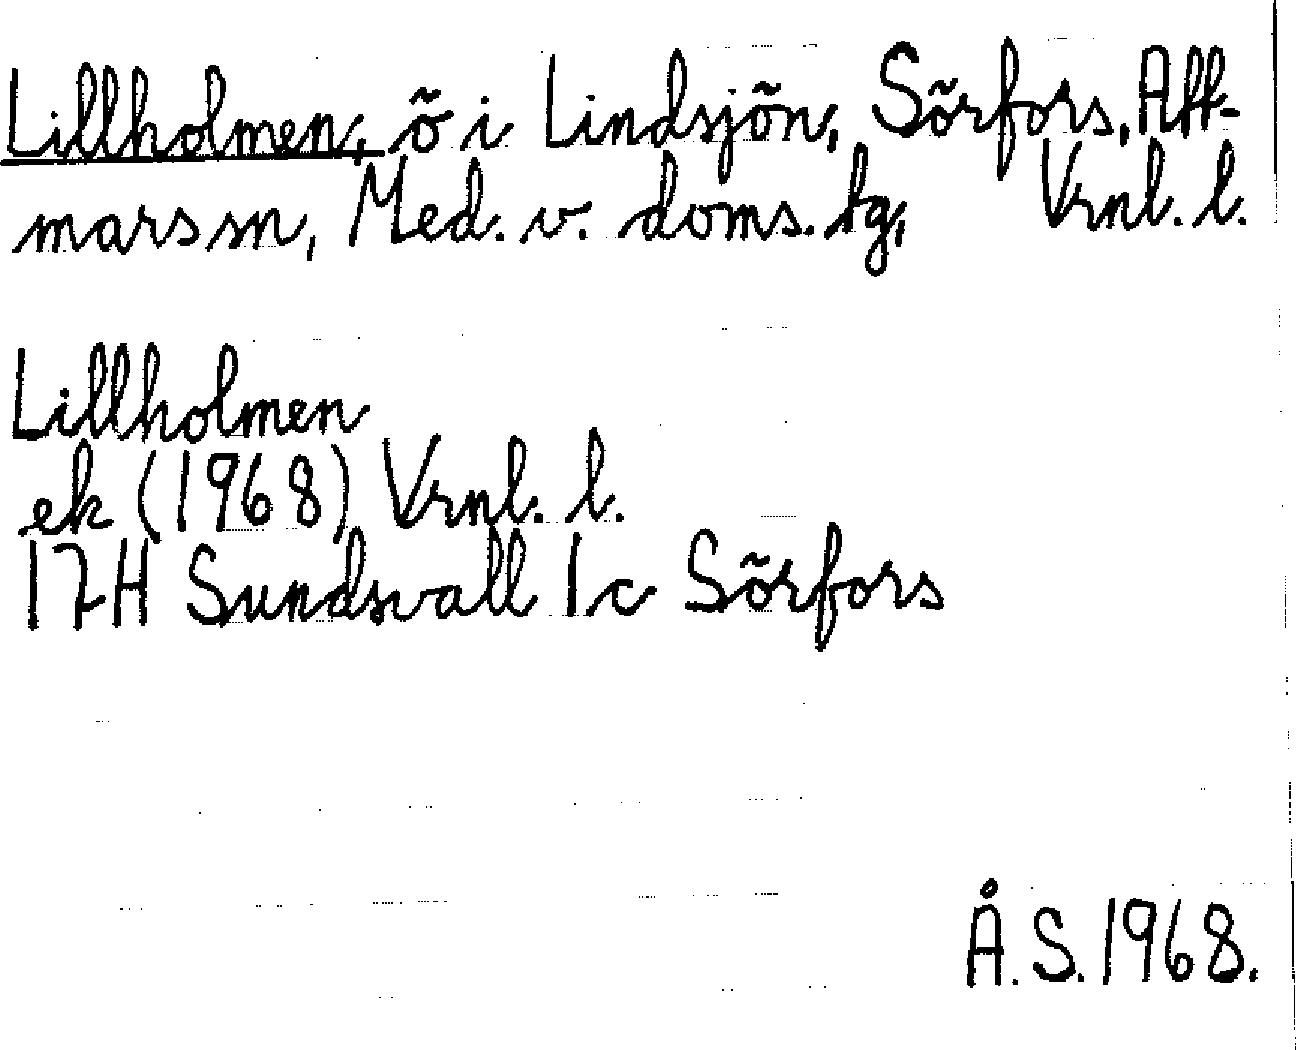 Lillholmen, ö i Lindsjön, Sörfors, Att-
mars sn, Med. v. doms. tg, Vrnl. l.
Lillholmen
ek (1968) Vrnl. l.
17H Sundsvall 1c Sörfors
Å.S. 1968.